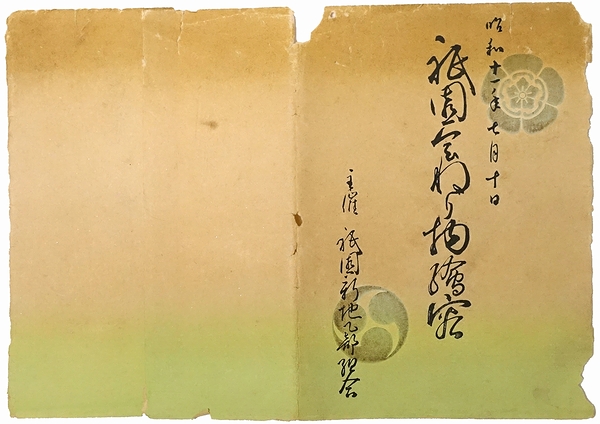 昭和十一年七月十日
祇園会ねり物絵容
主催 祇園新地乙部組合